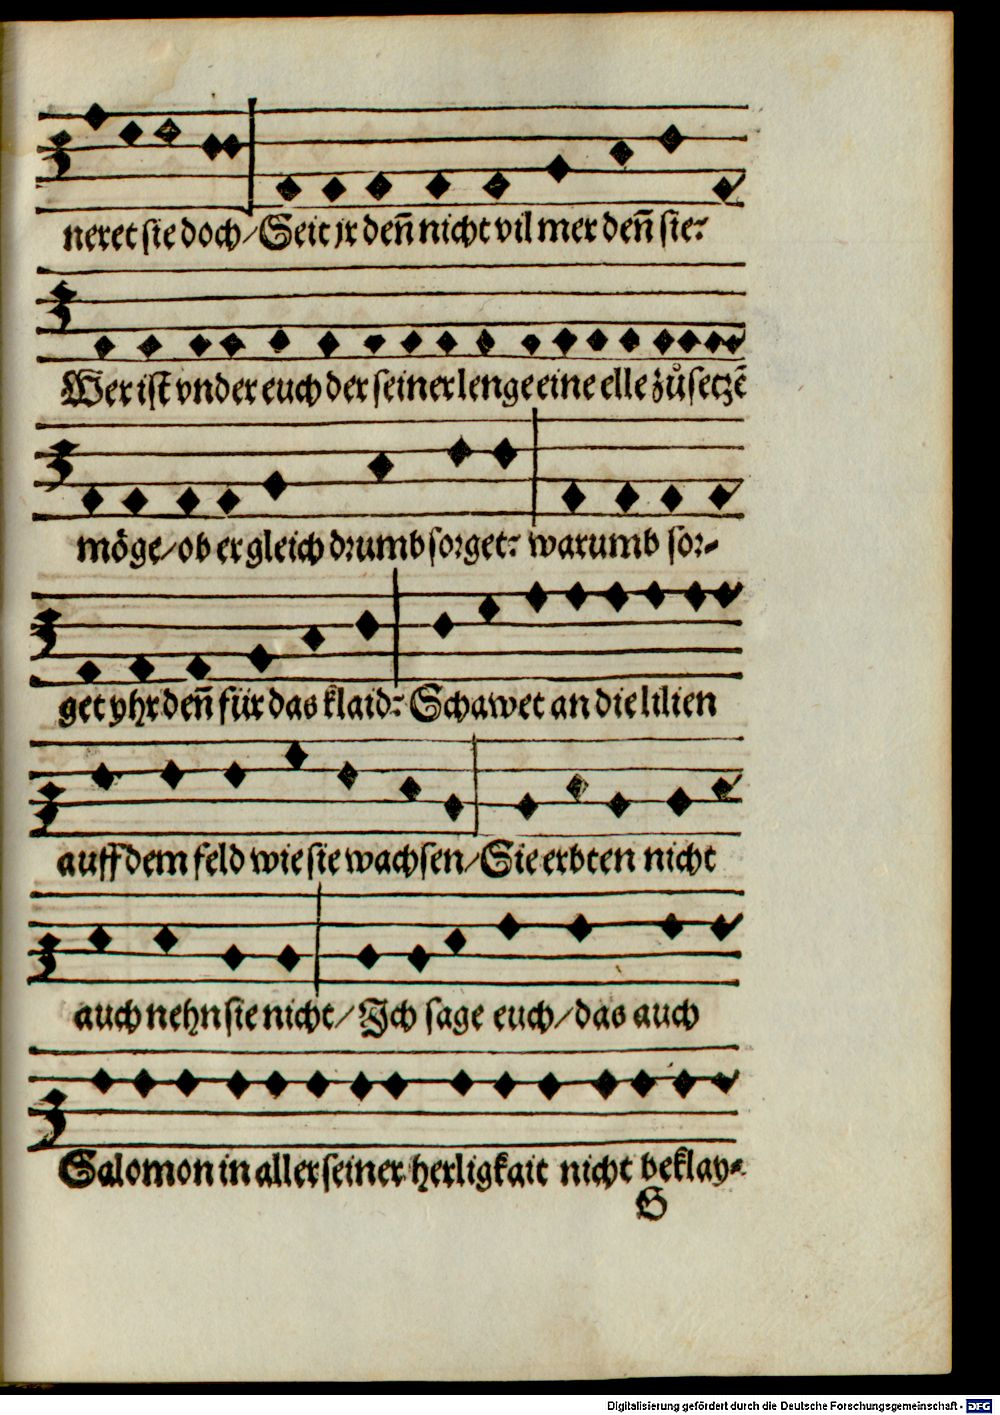 neret sie doch/Seit jr deñ nicht vil mer deñ sie?
Wer ist vnder euch der seiner lenge eine elle zůsetzē
möge/ob er gleich drumb sorget? warumb sor-
get yhr deñ für das klaid? Schawet an die lilien
auff dem feld wie sie wachsen/Sie erbten nicht
auch nehn sie nicht/Jch sage euch/das auch
Salomon in aller seiner herligkait nicht beklay-
G
Digitalisierung gefördert durch die Deutsche Forschungsgemeinschaft - DFG